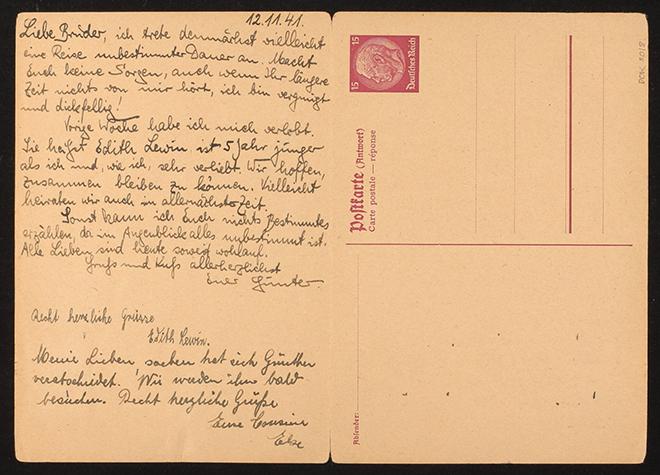 12.11.41.
Liebe Brüder, ich trete demnächst vielleicht
eine Reise unbestimmter Dauer an. Macht
Euch keine Sorgen, auch wenn Ihr längere
Zeit nichts von mir hört, ich bin vergnügt
und dickfellig!
Vorige Woche habe ich mich verlobt.
Sie heißt Edith Lewin ist 5 Jahr jünger
als ich und, wie ich, sehr verliebt. Wir hoffen,
zusammen bleiben zu können. Vielleicht
heiraten wir auch in allernächster Zeit.
Sonst kann ich Euch nichts Bestimmtes
erzählen, da im Augenblick alles unbestimmt ist.
Alle Lieben sind heute soweit wohlauf.
Gruß und Kuß allerherzlichst
Euer Günter.
Recht herzliche Grüsse
Edith Lewin.
Meine Lieben soeben hat sich Günther
verabschiedet. Wir werden ihn bald
besuchen. Recht herzliche Grüße
Eure Cousine
Else
15 Deutsches Reich 15
Postkarte (Antwort)
Carte postale — réponse
Absender: